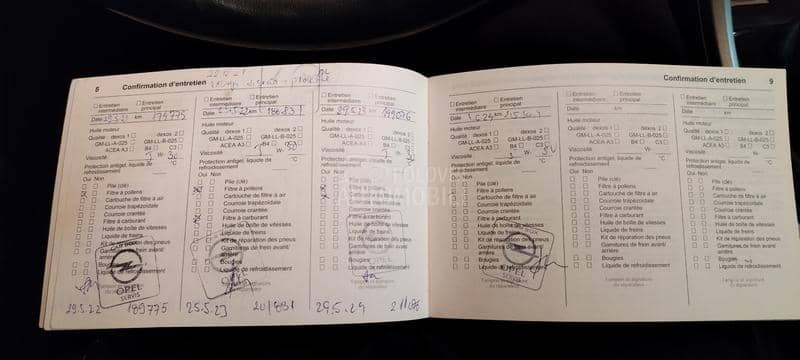 8 Confirmation d'entretien
Entretien intermédiaire
Entretien principal
Date 29.5.21 km 179775
Huile moteur
Qualité : dexos 1 dexos 2
GM-LL-A-025 GM-LL-B-025
ACEA A3 B4 C3
Viscosité W-
Protection antigel, liquide de refroidissement °C
Oui Non
Pile (clé)
Filtre à pollens
Cartouche de filtre à air
Courroie trapézoïdale
Courroie crantée
Filtre à carburant
Huile de boîte de vitesses
Liquide de freins
Kit de réparation des pneus
Garnitures de frein avant/arrière
Bougies
Liquide de refroidissement
OPEL
SERVIS
29.5.22 189775
Entretien intermédiaire
Entretien principal
Date km 186831
Huile moteur
Qualité : dexos 1 dexos 2
GM-LL-A-025 GM-LL-B-025
ACEA A3 B4 C3
Viscosité W-
Protection antigel, liquide de refroidissement °C
Oui Non
Pile (clé)
Filtre à pollens
Cartouche de filtre à air
Courroie trapézoïdale
Courroie crantée
Filtre à carburant
Huile de boîte de vitesses
Liquide de freins
Kit de réparation des pneus
Garnitures de frein avant/arrière
Bougies
Liquide de refroidissement
25.5.23 201831
Entretien intermédiaire
Entretien principal
Date 29.5.23 km
Huile moteur
Qualité : dexos 1 dexos 2
GM-LL-A-025 GM-LL-B-025
ACEA A3 B4 C3
Viscosité W-
Protection antigel, liquide de refroidissement °C
Oui Non
Pile (clé)
Filtre à pollens
Cartouche de filtre à air
Courroie trapézoïdale
Courroie crantée
Filtre à carburant
Huile de boîte de vitesses
Liquide de freins
Kit de réparation des pneus
Garnitures de frein avant/arrière
Bougies
Liquide de refroidissement
29.5.24
Confirmation d'entretien 9
Entretien intermédiaire
Entretien principal
Date km
Huile moteur
Qualité : dexos 1 dexos 2
GM-LL-A-025 GM-LL-B-025
ACEA A3 B4 C3
Viscosité W-
Protection antigel, liquide de refroidissement °C
Oui Non
Pile (clé)
Filtre à pollens
Cartouche de filtre à air
Courroie trapézoïdale
Courroie crantée
Filtre à carburant
Huile de boîte de vitesses
Liquide de freins
Kit de réparation des pneus
Garnitures de frein avant/arrière
Bougies
Liquide de refroidissement
Entretien intermédiaire
Entretien principal
Date km
Huile moteur
Qualité : dexos 1 dexos 2
GM-LL-A-025 GM-LL-B-025
ACEA A3 B4 C3
Viscosité W-
Protection antigel, liquide de refroidissement °C
Oui Non
Pile (clé)
Filtre à pollens
Cartouche de filtre à air
Courroie trapézoïdale
Courroie crantée
Filtre à carburant
Huile de boîte de vitesses
Liquide de freins
Kit de réparation des pneus
Garnitures de frein avant/arrière
Bougies
Liquide de refroidissement
Tampon et signature du réparateur
Entretien intermédiaire
Entretien principal
Date km
Huile moteur
Qualité : dexos 1 dexos 2
GM-LL-A-025 GM-LL-B-025
ACEA A3 B4 C3
Viscosité W-
Protection antigel, liquide de refroidissement °C
Oui Non
Pile (clé)
Filtre à pollens
Cartouche de filtre à air
Courroie trapézoïdale
Courroie crantée
Filtre à carburant
Huile de boîte de vitesses
Liquide de freins
Kit de réparation des pneus
Garnitures de frein avant/arrière
Bougies
Liquide de refroidissement
Tampon et signature du réparateur